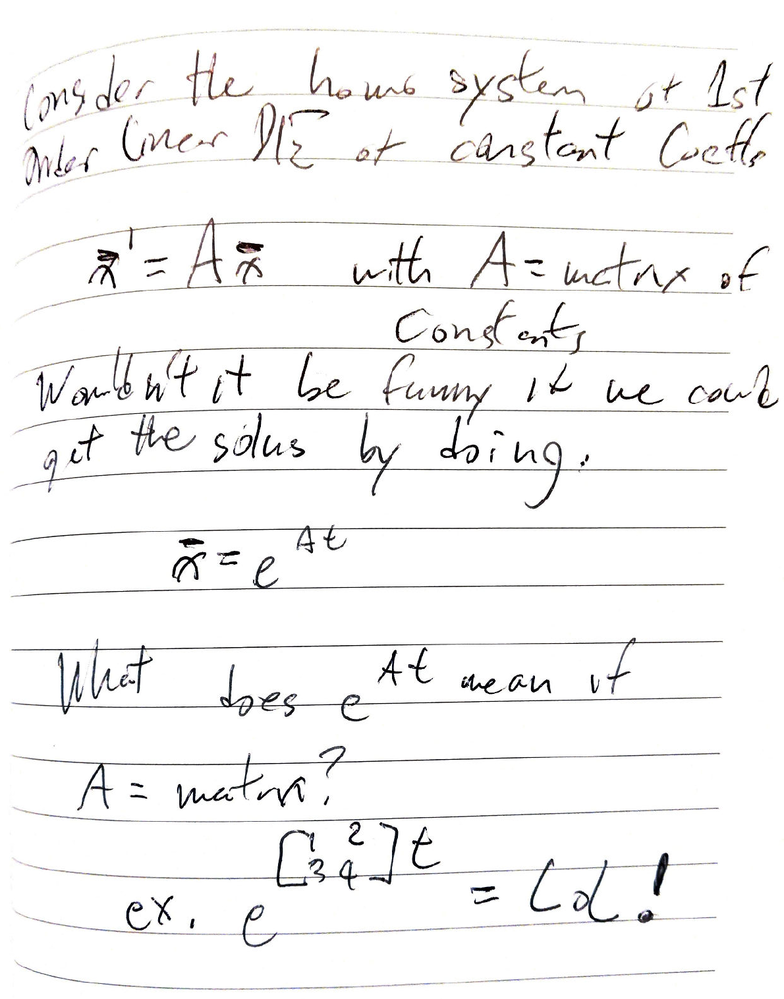 Consider the homo system of 1st
order linear DE of constant Coeffs
x̄' = A x̄ with A = matrix of
Constants
Wouldn't it be funny if we could
get the solns by doing.
x̄ = e^{At}
What does e^{At} mean if
A = matrix?
ex. e^{[1 2; 3 4] t} = LOL!